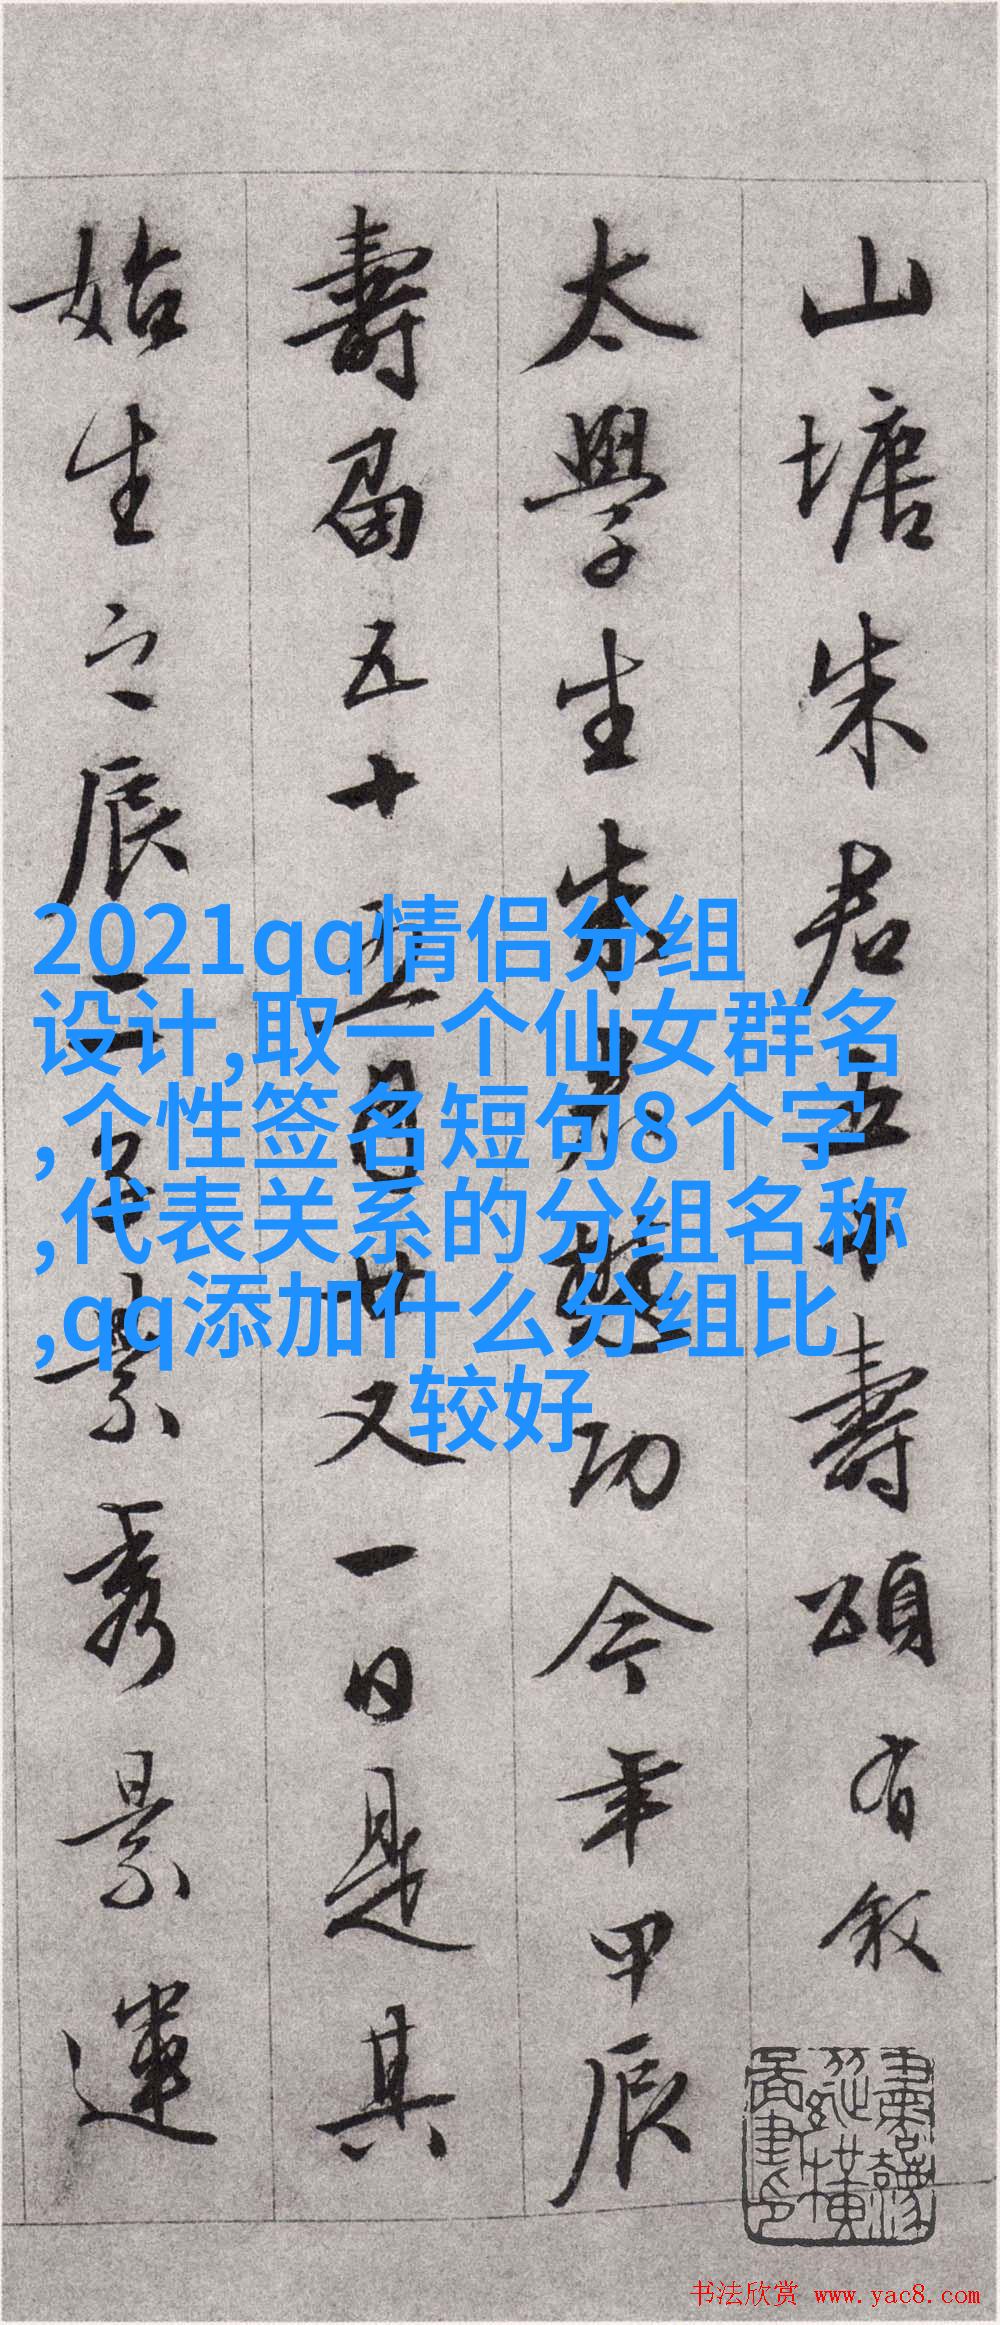 山塘朱君五十壽頌有叙
太學生朱君懋功今年甲辰
壽届五十五月廿又一日是其
始生之辰二
景秀景運
2021qq情侣分组
设计,取一个仙女群名
,个性签名短句8个字
,代表关系的分组名称
,qq添加什么分组比
较好
书法欣赏 www.yac8.com